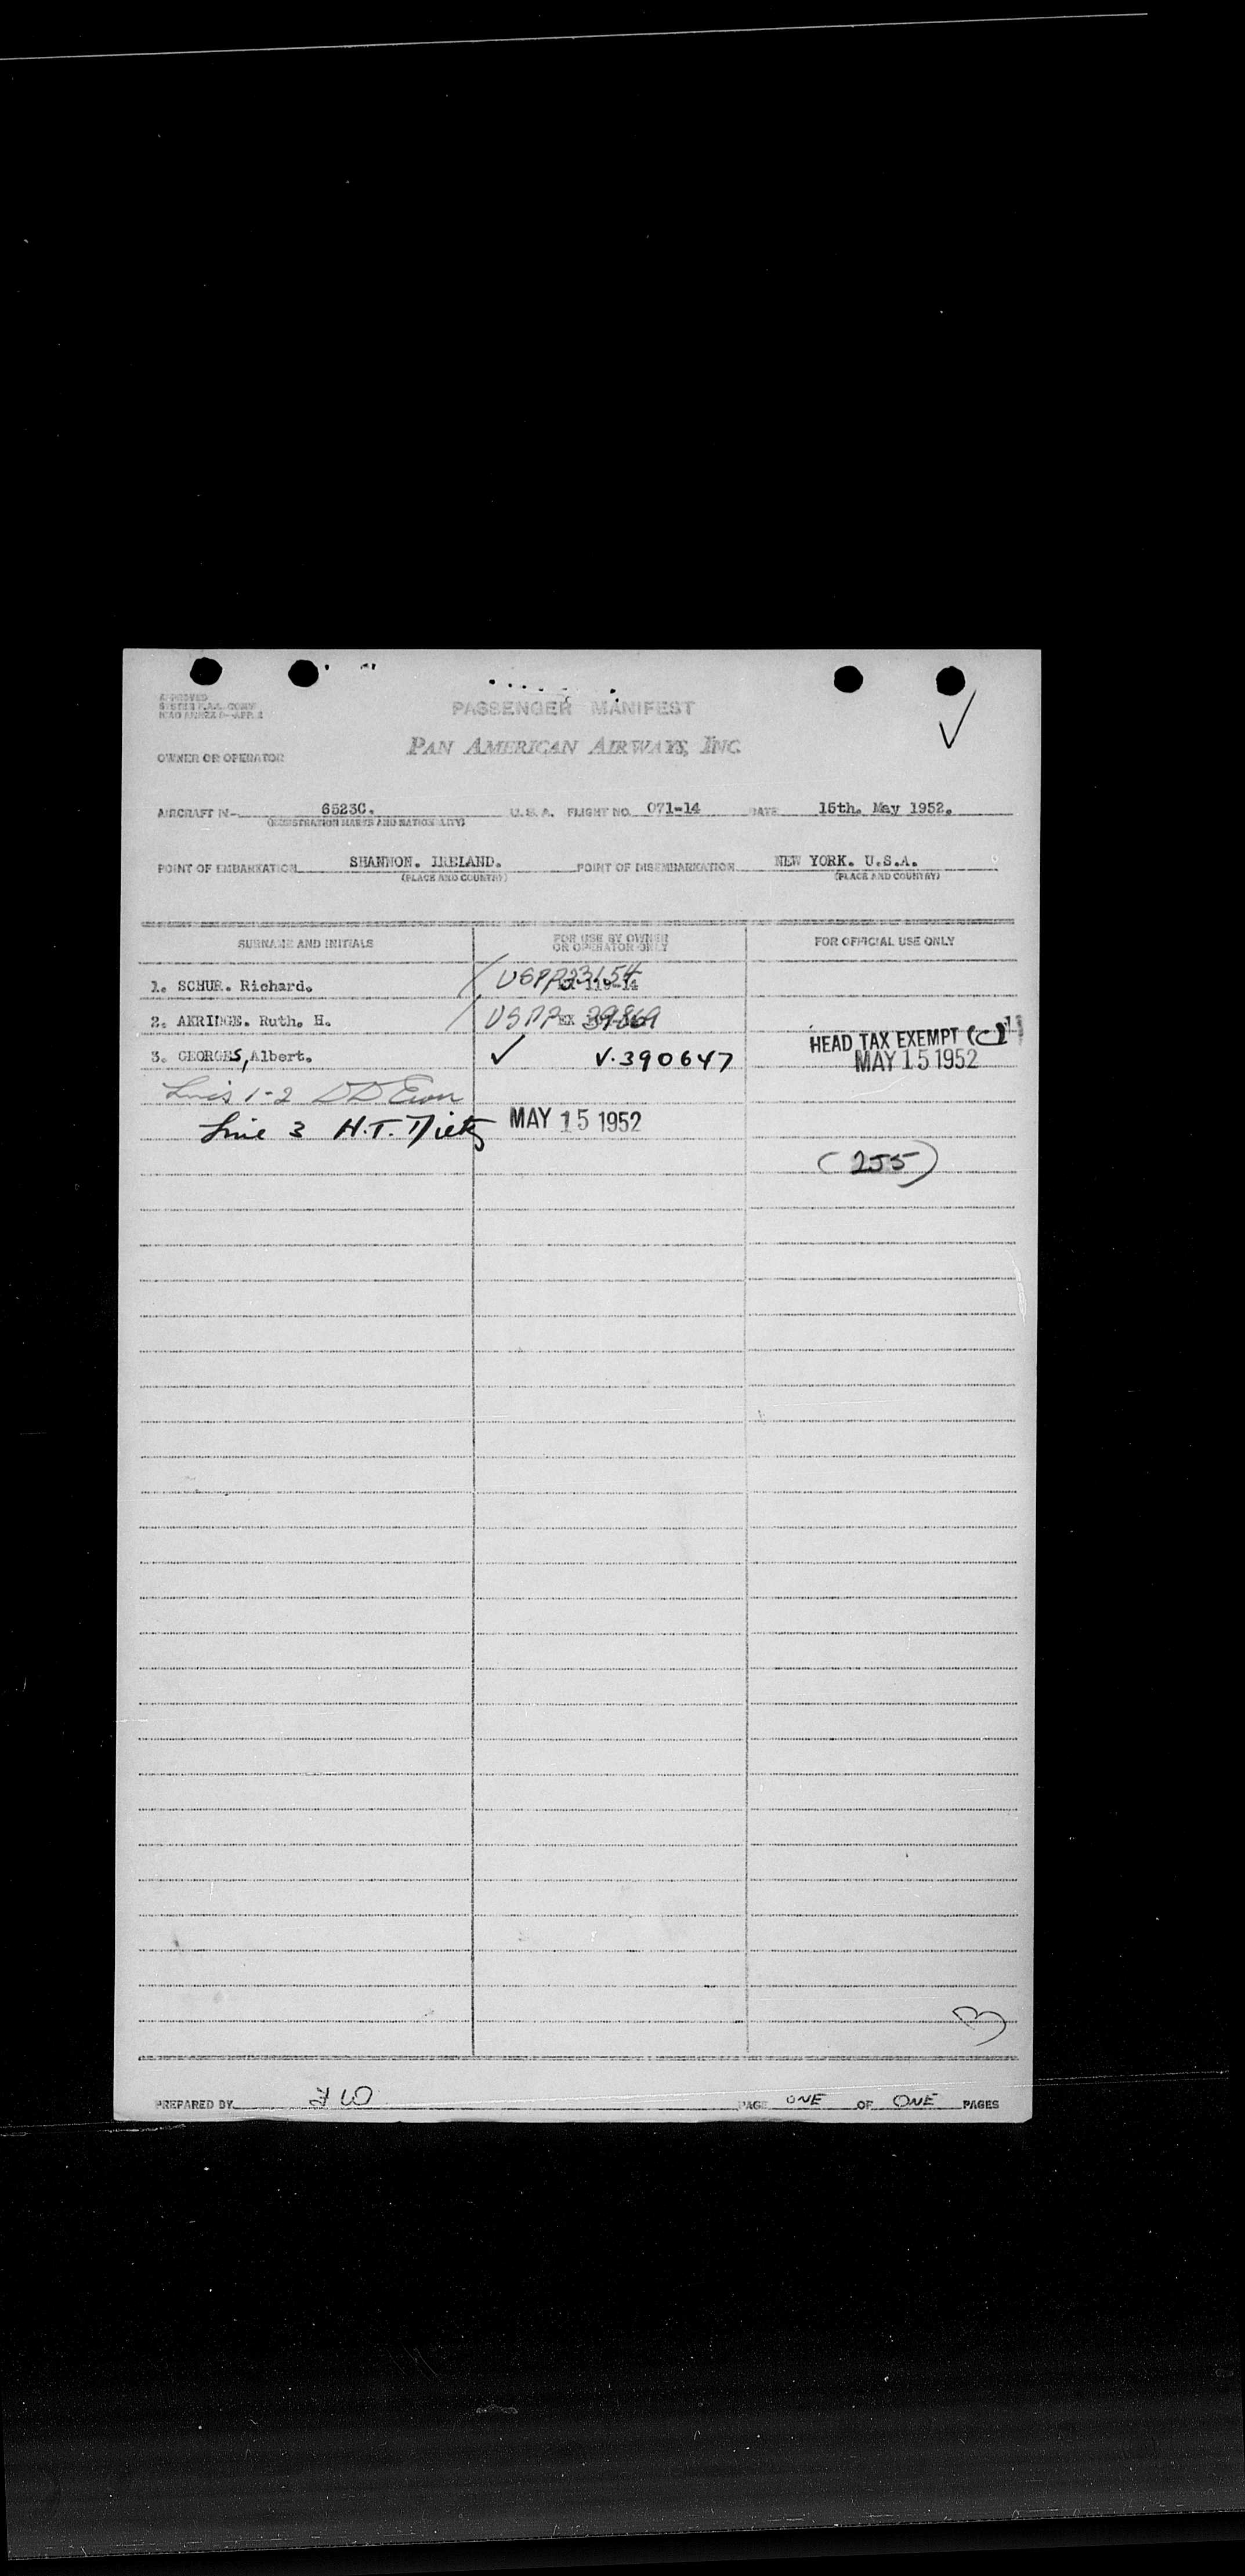 APPROVED
PASSENGER MANIFEST
PAN AMERICAN AIRWAYS, INC.
OWNER OR OPERATOR
AIRCRAFT N- 6523C. U.S.A. FLIGHT NO. 071-14 DATE 15th. May 1952.
(REGISTRATION MARKS AND NATIONALITY)
POINT OF EMBARKATION SHANNON. IRELAND. POINT OF DISEMBARKATION NEW YORK. U.S.A.
(PLACE AND COUNTRY) (PLACE AND COUNTRY)
SURNAME AND INITIALS FOR USE BY OWNER OR OPERATOR ONLY FOR OFFICIAL USE ONLY
1. SCHUR. Richard. USPP
2. AKRIDGE. Ruth. H. USPP EX
3. GEORGES, Albert. ✓ V.390647 HEAD TAX EXEMPT (C)
MAY 15 1952
1-2
Line 3 H.T. MAY 15 1952
(255)
PREPARED BY PAGE ONE OF ONE PAGES